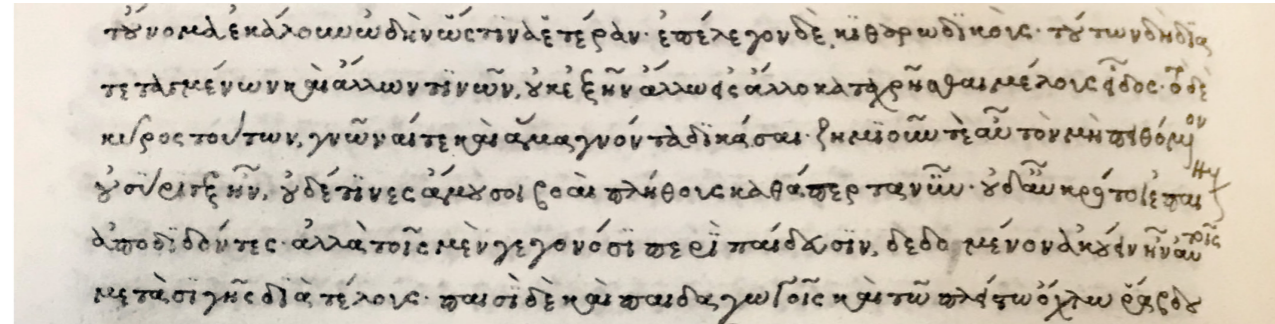 τοὔνομα ἐκάλουν ὠδὴν ὥς τινα ἑτέραν· ἐπέλεγον δὲ κιθαρωδικούς· τούτων δὴ δια
τεταγμένων καὶ ἄλλων τινῶν, οὐκ ἐξῆν ἄλλω εἰς ἄλλο καταχρῆσθαι μέλους εἶδος· τὸ δὲ
κῦρος τούτων, γνῶναί τε καὶ ἅμα γνόντα δικάσαι· ζημιοῦν τὲ αὖ τὸν μὴ πιθόμενον
οὐ σύριγξ ἦν, οὐδέ τινες ἄμουσοι βοαὶ πλήθους καθάπερ τανῦν· οὐδ' αὖ κρότοι ἐπαι
ἀποδιδόντες· ἀλλὰ τοῖς μὲν γεγονόσι περὶ παίδευσιν, δεδο μένον ἀκούειν ἦν αὐτοῖς
μετὰ σιγῆς διὰ τέλους· παισὶ δὲ καὶ παιδαγωγοῖς καὶ τῶ πλείστω ὄχλω ῥάβδου